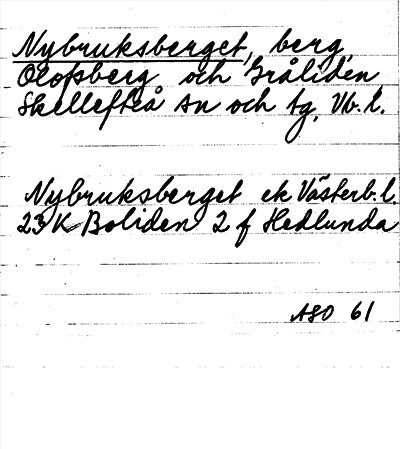 Nybruksberget, berg,
Olofsberg och Gråliden,
Skellefteå sn och tg, Vb. l.
Nybruksberget ek Västerb. l.
23 K Boliden 2 f Hedlunda
ASO 61